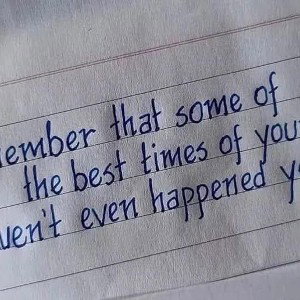 ember that some of
the best times of you
ven't even happened y